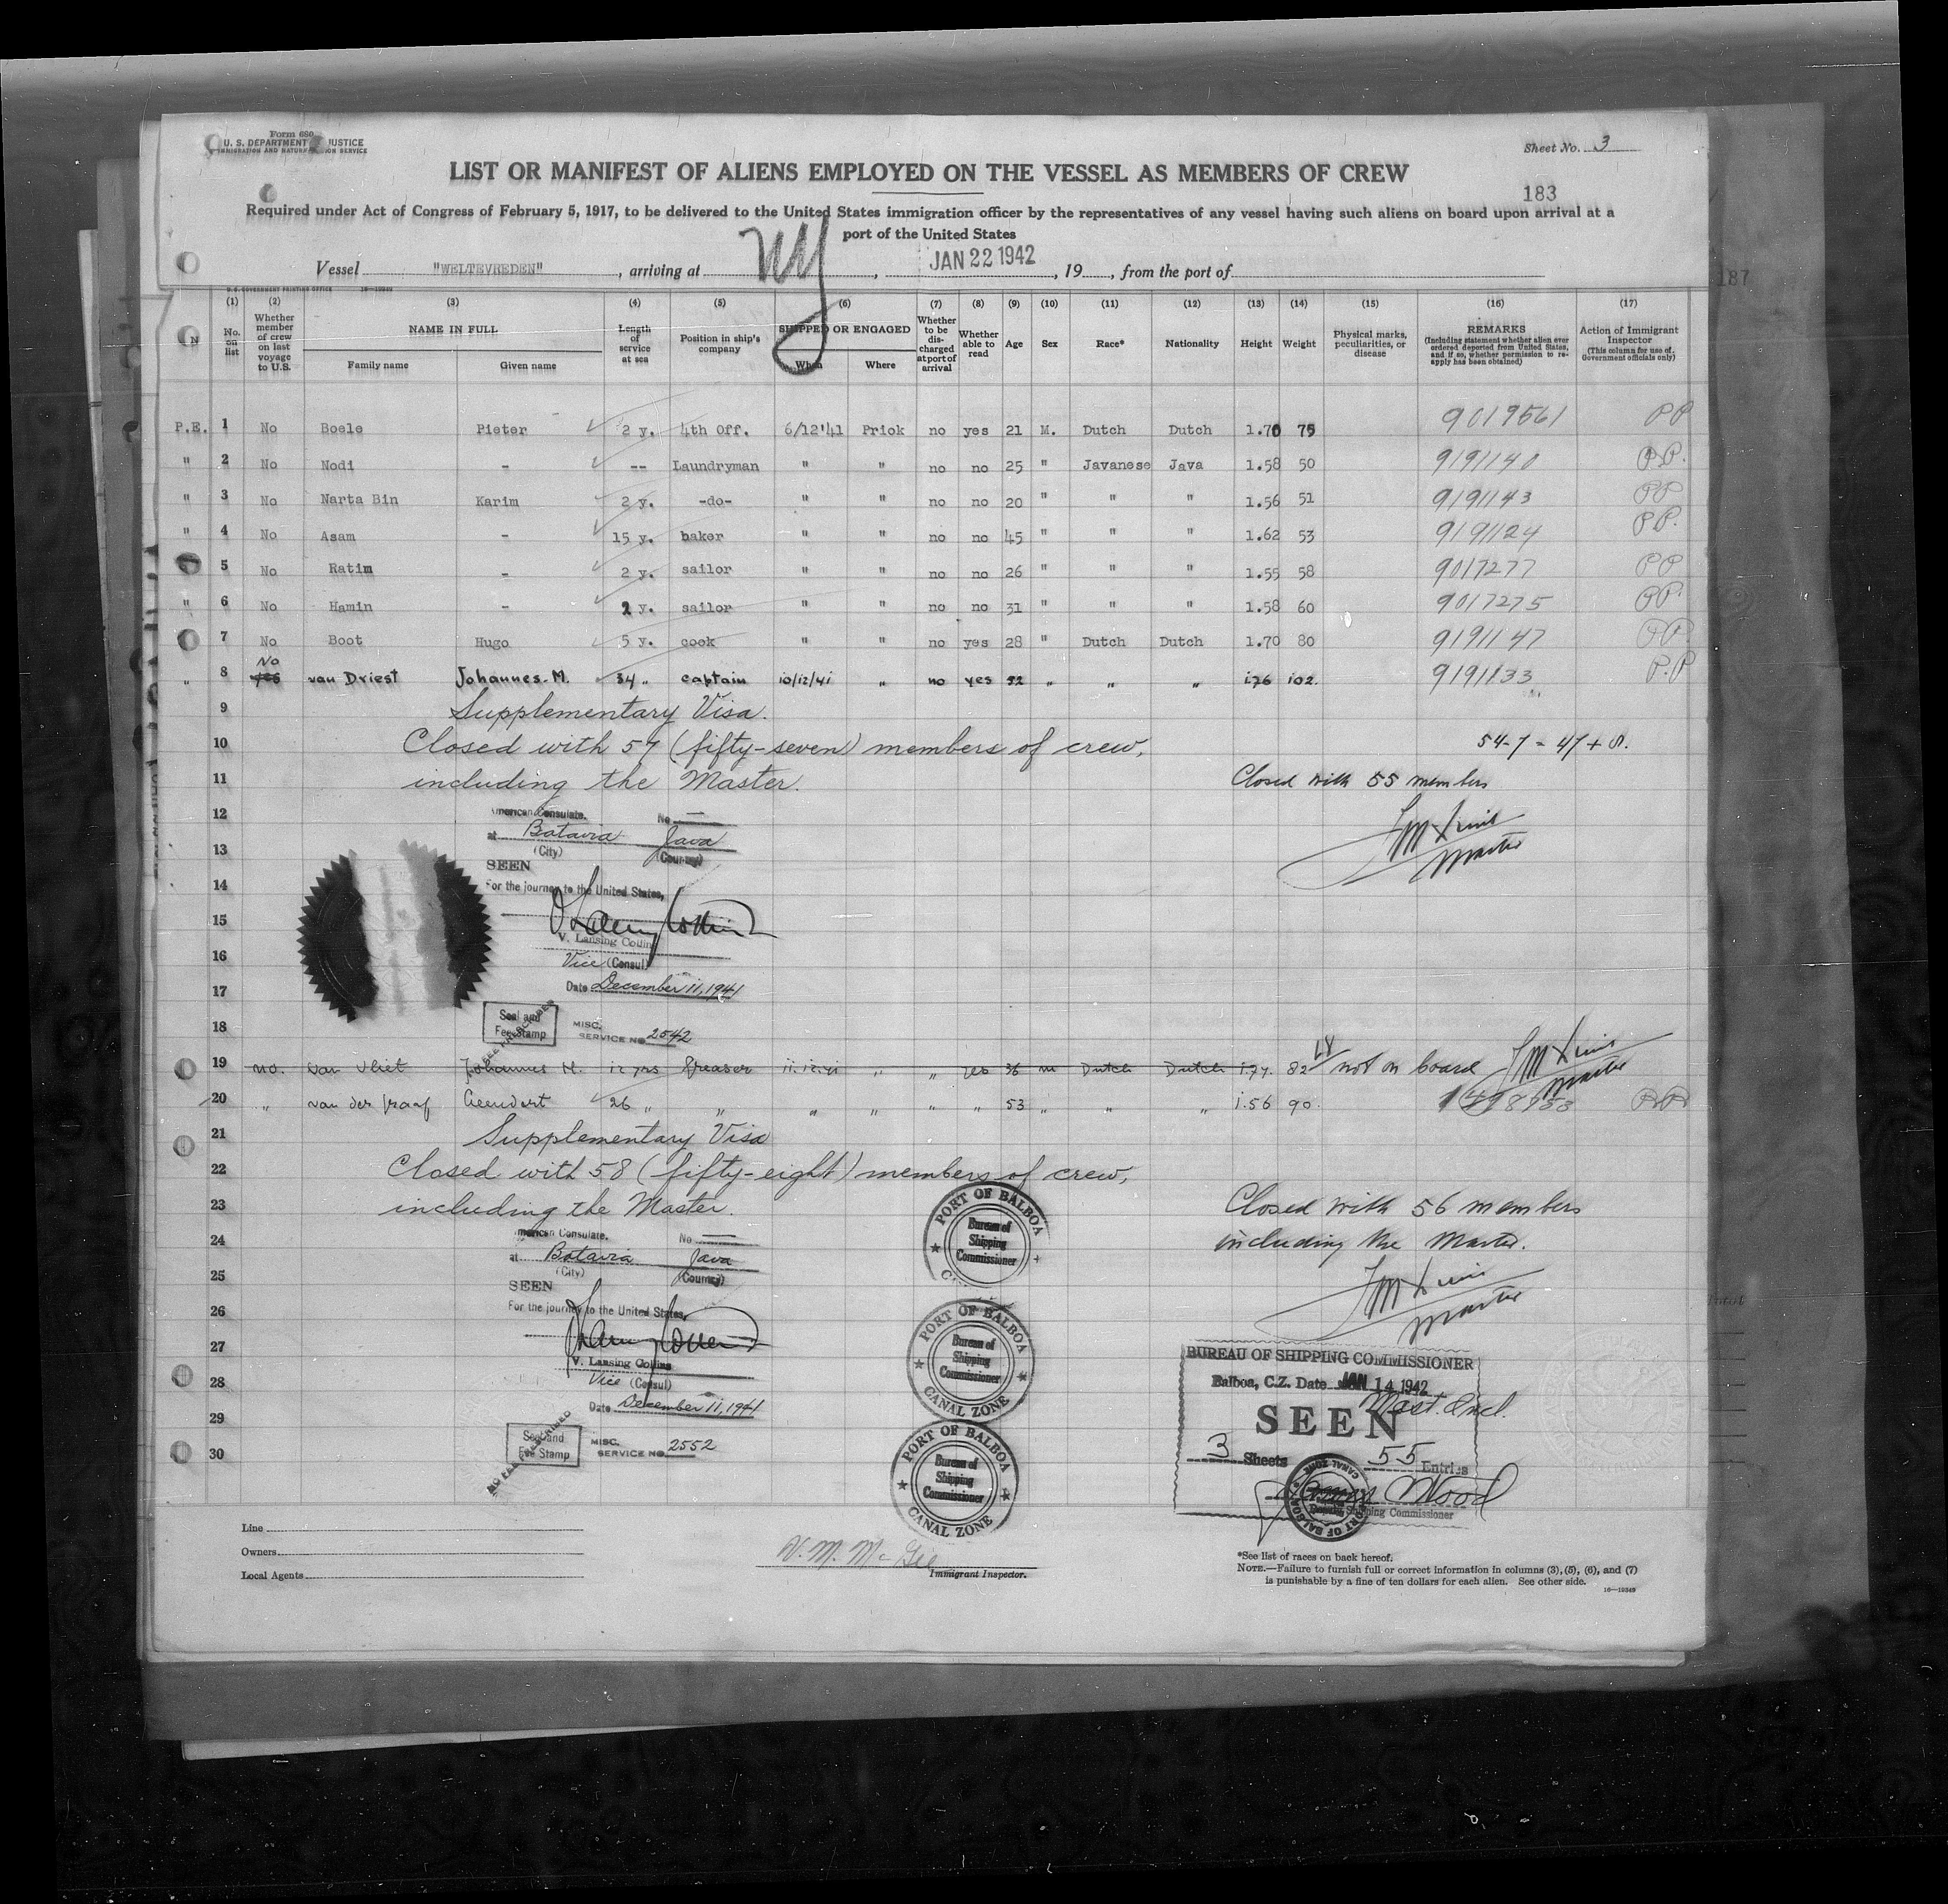 Form 680
U. S. DEPARTMENT JUSTICE
IMMIGRATION AND NATURALIZATION SERVICE
Sheet No. 3
LIST OR MANIFEST OF ALIENS EMPLOYED ON THE VESSEL AS MEMBERS OF CREW
183
Required under Act of Congress of February 5, 1917, to be delivered to the United States immigration officer by the representatives of any vessel having such aliens on board upon arrival at a
port of the United States
Vessel "WELTEVREDEN", arriving at NY, JAN 22 1942, 19, from the port of
187
(1) (2) (3) (4) (5) (6) (7) (8) (9) (10) (11) (12) (13) (14) (15) (16) (17)
No. on list
Whether member of crew on last voyage to U.S.
NAME IN FULL
Family name Given name
Length of service at sea
Position in ship's company
SHIPPED OR ENGAGED
When Where
Whether to be discharged at port of arrival
Whether able to read
Age Sex Race* Nationality Height Weight
Physical marks, peculiarities, or disease
REMARKS
(Including statement whether alien ever ordered deported from United States, and if so, whether permission to reapply has been obtained)
Action of Immigrant Inspector
(This column for use of Government officials only)
P.E. 1 No Boele Pieter 2 y. 4th Off. 6/12'41 Priok no yes 21 M. Dutch Dutch 1.70 75 9019561 PP
" 2 No Nodi - -- Laundryman " " no no 25 " Javanese Java 1.58 50 9191140 P.P.
" 3 No Narta Bin Karim 2 y. -do- " " no no 20 " " " 1.56 51 9191143 PP
" 4 No Asam - 15 y. baker " " no no 45 " " " 1.62 53 9191124 P.P.
5 No Ratim - 2 y. sailor " " no no 26 " " " 1.55 58 9017277 PP
" 6 No Hamin - 2 y. sailor " " no no 31 " " " 1.58 60 9017275 PP.
7 No Boot Hugo 5 y. cook " " no yes 28 " Dutch Dutch 1.70 80 9191147 PP.
" 8 No yes van Driest Johannes. M. 34 " captain 10/12/41 " no yes 52 " " " 176 102. 9191133 P.P
9 Supplementary Visa.
10 Closed with 57 (fifty-seven) members of crew,
11 including the Master. Closed with 55 members
12 American Consulate. No
at Batavia Java
13 (City) (Country)
SEEN
14 For the journey to the United States,
15
V. Lansing Collins
16 Vice (Consul)
17 Date December 11, 1941
18 Seal and Fee Stamp MISC. SERVICE NO 2542
19 no. van Vliet Johannes H. 12 yrs Greaser 11.12.41 " " yes 36 m Dutch Dutch 1.74. 82 not on board Master
20 " van der Graaf Leendert 26 " " " " " " 53 " " " 1.56 90. PP
21 Supplementary Visa
22 Closed with 58 (fifty-eight) members of crew,
23 including the Master. Closed with 56 members
24 American Consulate. No including the Master.
at Batavia Java
25 (City) (Country)
SEEN
26 For the journey to the United States, Master
27
V. Lansing Collins
28 Vice (Consul)
Date December 11, 1941
29
30 Seal and Fee Stamp MISC. SERVICE NO 2552
NO FEE PRESCRIBED
PORT OF BALBOA
Bureau of Shipping Commissioner
PORT OF BALBOA
Bureau of Shipping Commissioner
CANAL ZONE
PORT OF BALBOA
Bureau of Shipping Commissioner
CANAL ZONE
BUREAU OF SHIPPING COMMISSIONER
Balboa, C.Z. Date JAN 14 1942
Mast. Incl.
SEEN
3 Sheets 55 Entries
Wood
Deputy Shipping Commissioner
Line
Owners
Local Agents
Immigrant Inspector.
*See list of races on back hereof.
NOTE.—Failure to furnish full or correct information in columns (3), (5), (6), and (7)
is punishable by a fine of ten dollars for each alien. See other side.
16—19349